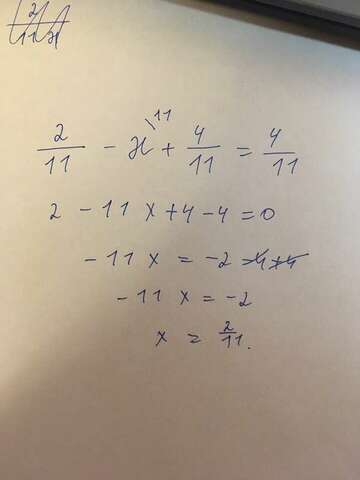 2/11 - x\11 + 4/11 = 4/11
2 - 11 x + 4 - 4 = 0
- 11 x = -2
- 11 x = -2
x = 2/11.